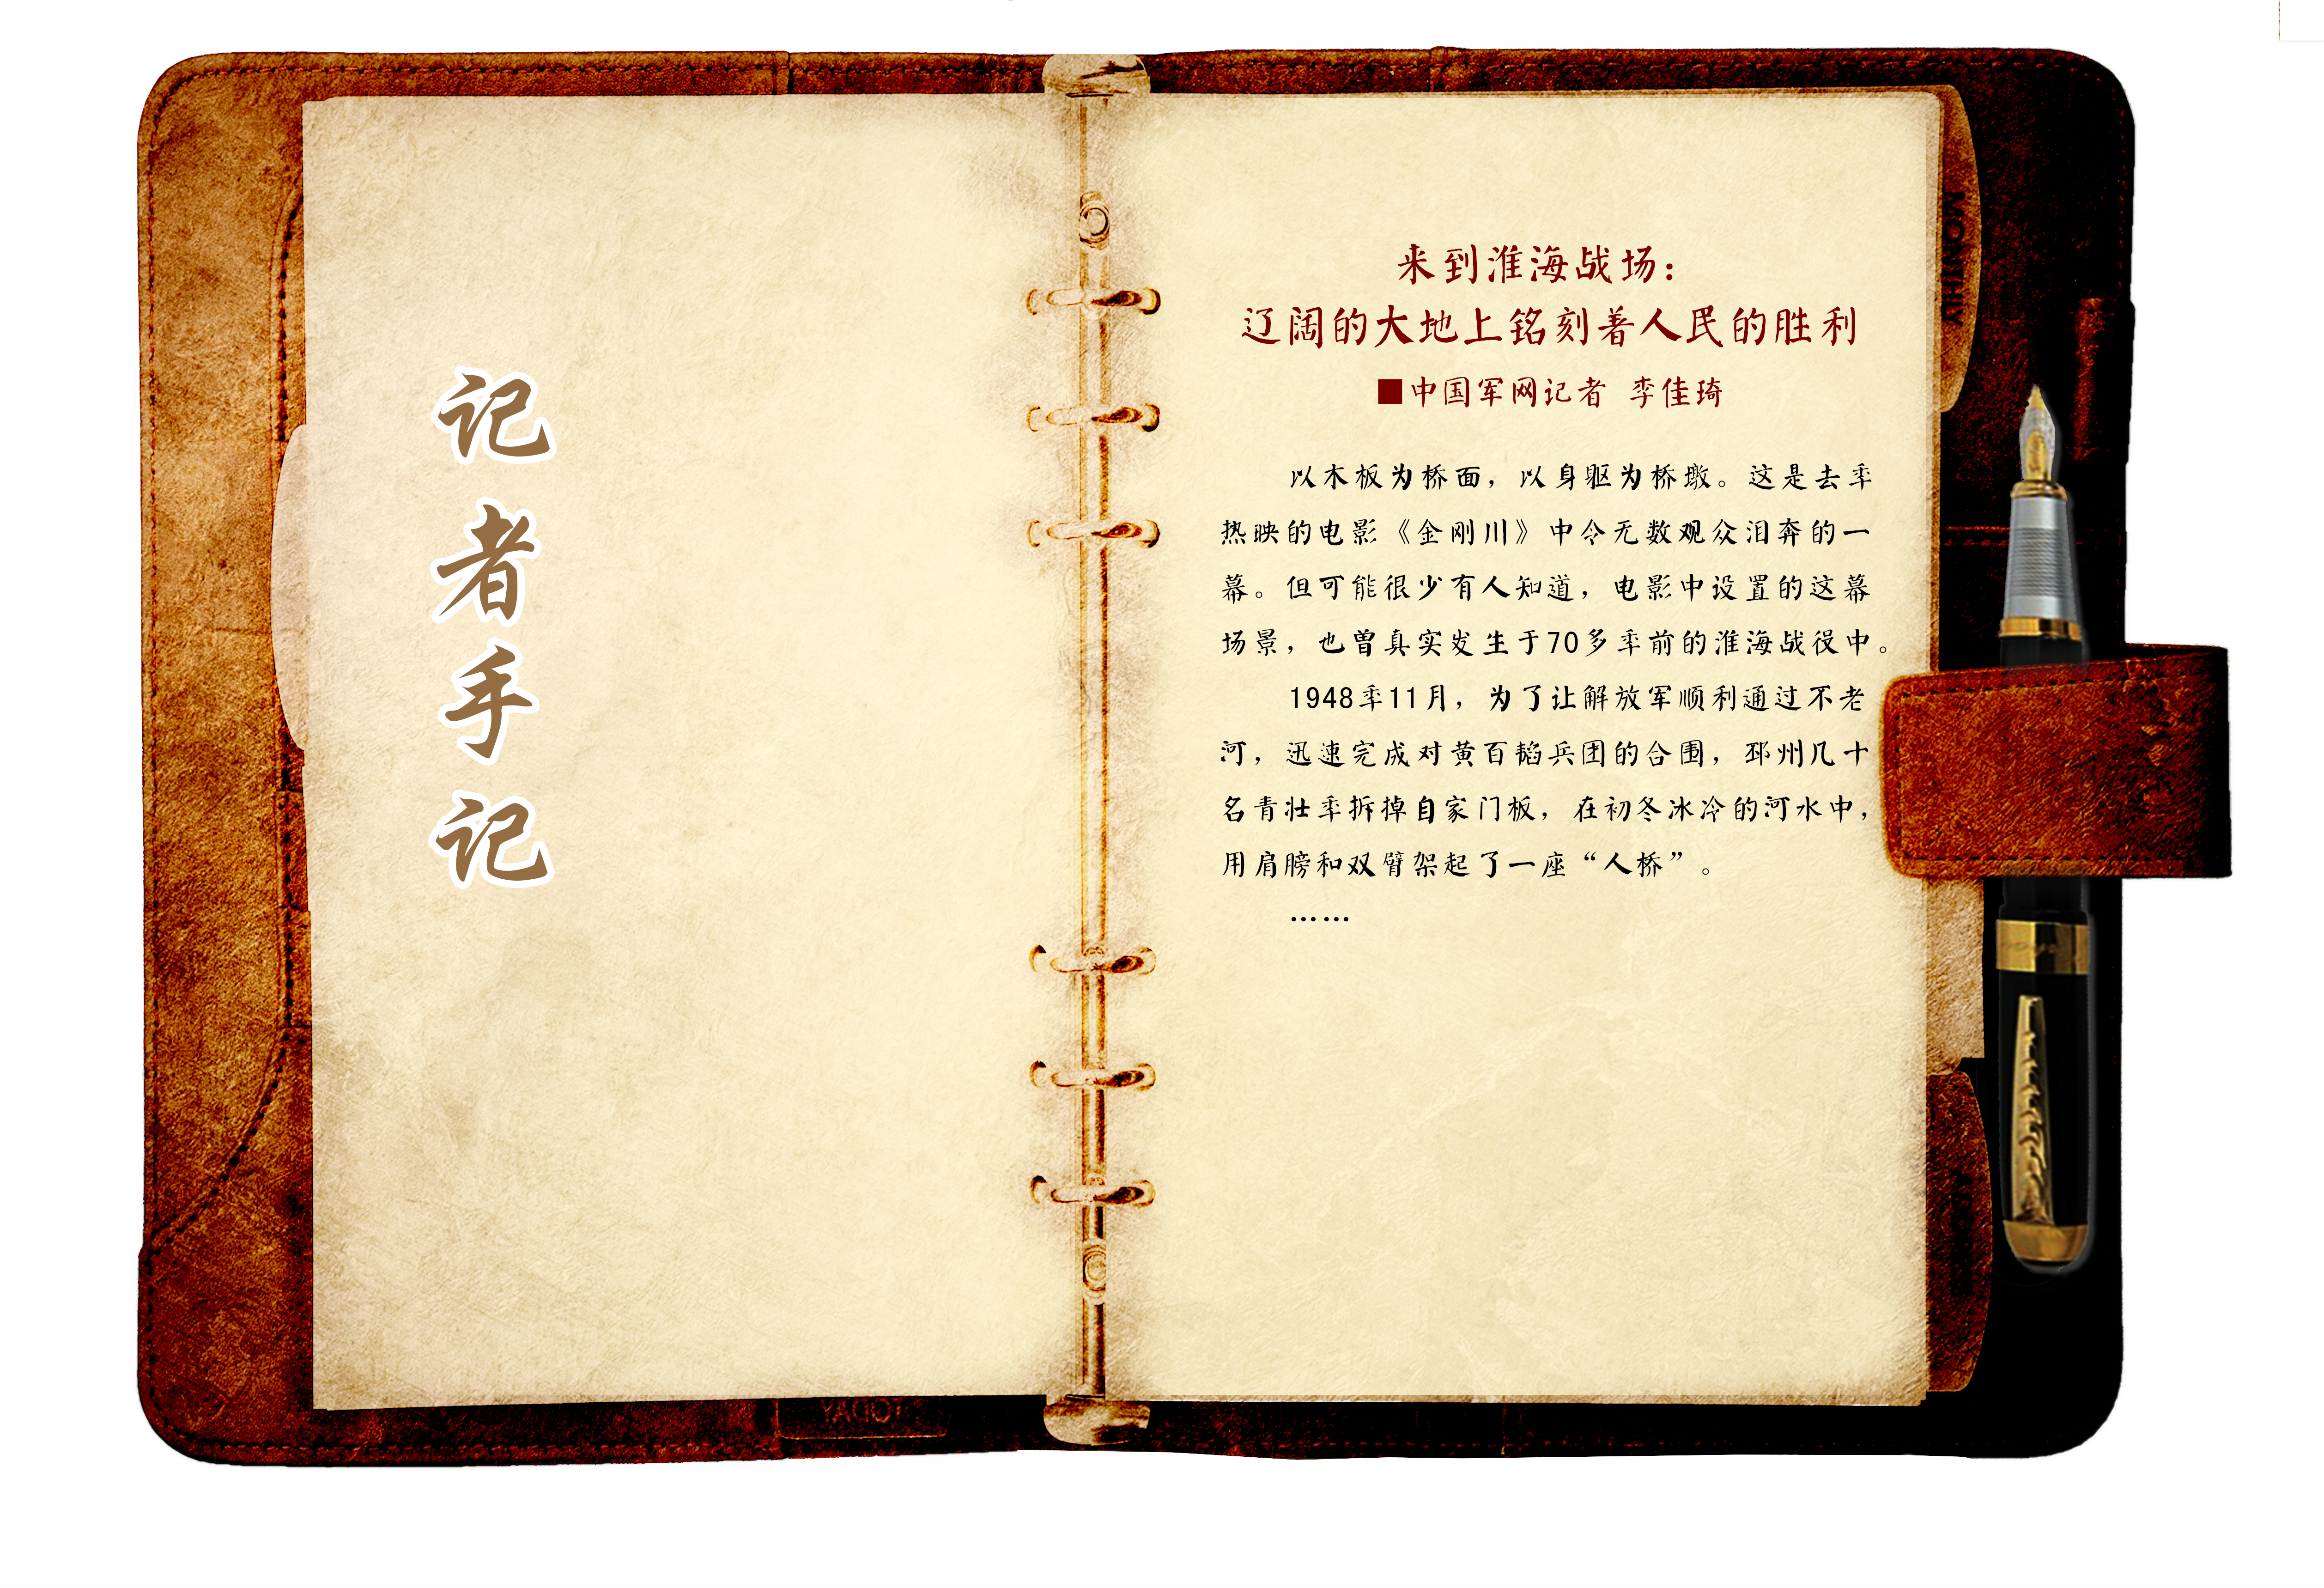 记者手记
来到淮海战场：
辽阔的大地上铭刻着人民的胜利
■中国军网记者 李佳琦
以木板为桥面，以身躯为桥墩。这是去年
热映的电影《金刚川》中令无数观众泪奔的一
幕。但可能很少有人知道，电影中设置的这幕
场景，也曾真实发生于70多年前的淮海战役中。
1948年11月，为了让解放军顺利通过不老
河，迅速完成对黄百韬兵团的合围，邳州几十
名青壮年拆掉自家门板，在初冬冰冷的河水中，
用肩膀和双臂架起了一座“人桥”。
……
MONTHLY
TODAY